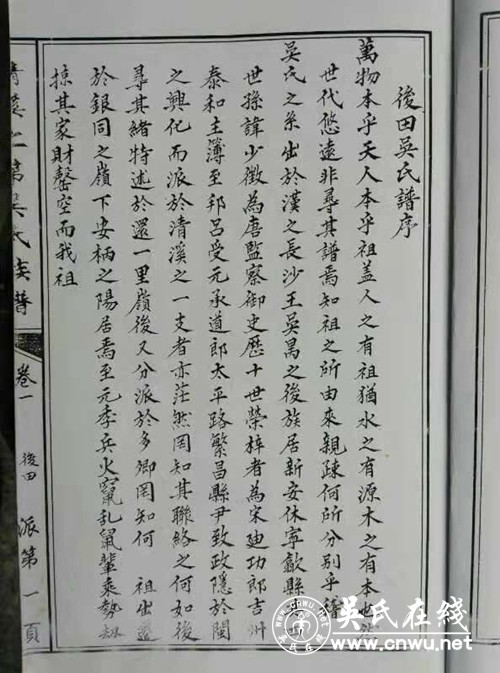 後田吳氏譜序
萬物本乎天人本乎祖蓋人之有祖猶水之有源木之有本也
世代悠遠非尋其譜焉知祖之所由來親疎何所分別乎
吳氏之系出於漢之長沙王吳芮之後族居新安休寧歙縣
世孫諱少徵為唐監察御史歷十世榮梓者為宋廸功郎吉州
泰和主簿至邦呂受元承道郎太平路繁昌縣尹致政隱於閩
之興化而派於清溪之一支者亦茫然罔知其聯絡之何如後
尋其緒特述於還一里嶺後又分派於多卿罔知何 祖出
於銀同之嶺下安柄之陽居焉至元季兵火竄乱鼠輩乘勢
掠其家財罄空而我祖
吳氏族譜
卷一
後田
派第一頁
吳氏在綫
www.cnwu.net